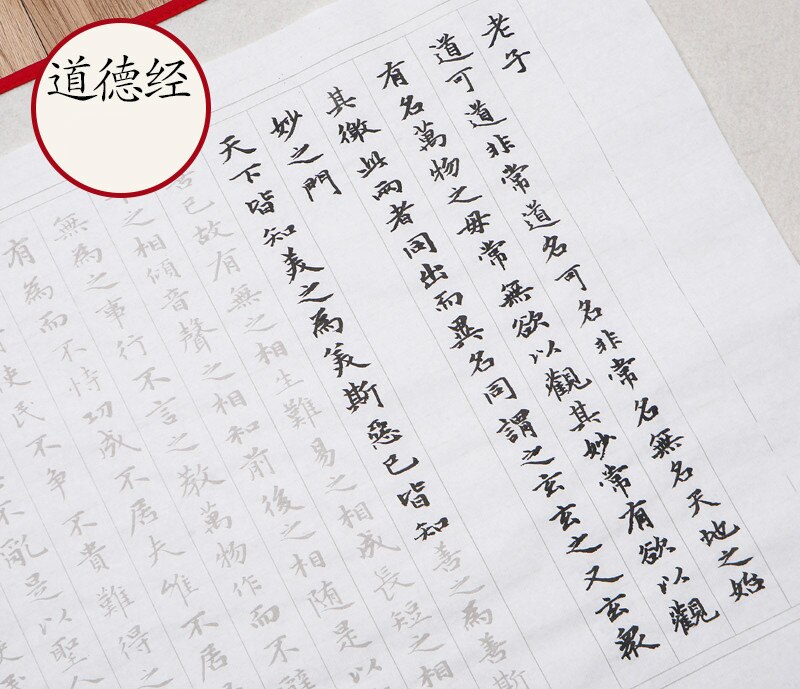 道德经
老子
道可道非常道名可名非常名無名天地之始
有名萬物之母常無欲以觀其妙常有欲以觀
其徼此兩者同出而異名同謂之玄玄之又玄眾
妙之門
天下皆知美之為美斯惡已皆知善之為善斯
已故有無之相生難易之相成長短之相
之相傾音聲之相和前後之相随是以
無為之事行不言之教萬物作而不
有為而不恃功成不居夫唯不居
使民不争不貴難得之
不亂是以聖人